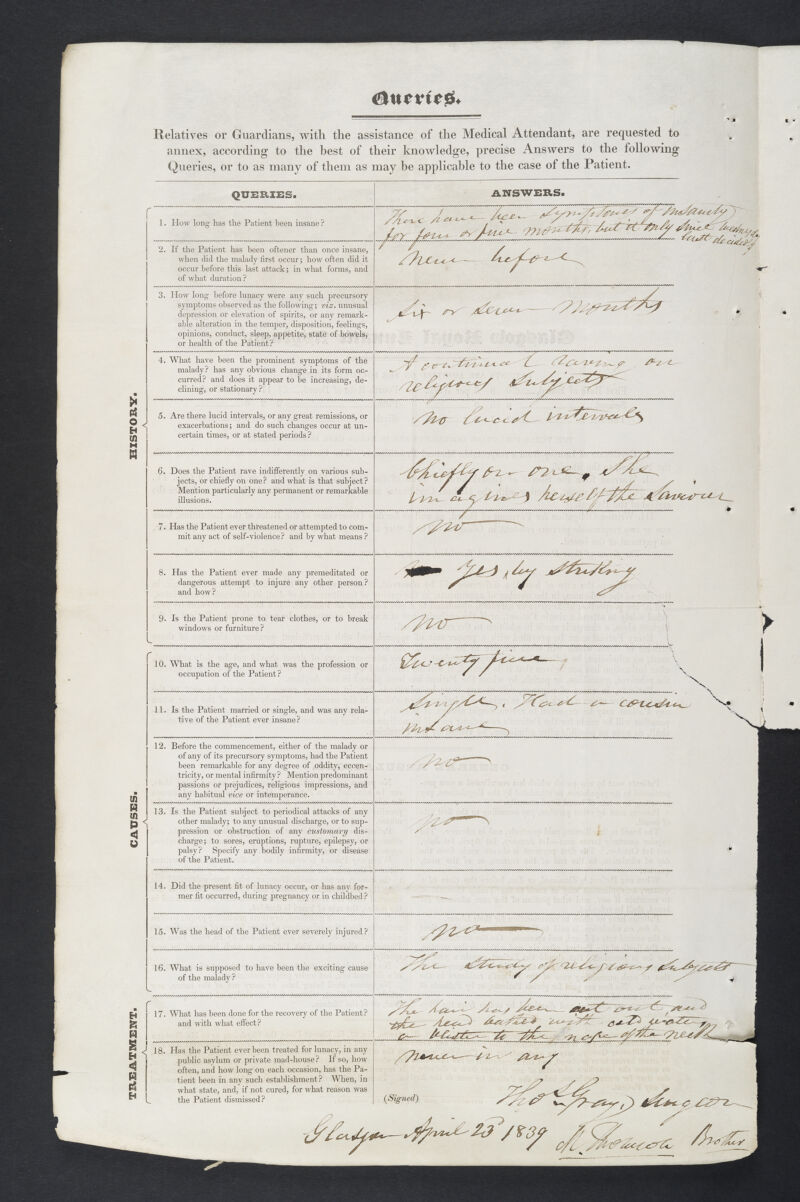 Queries.
Relatives or Guardians, with the assistance of the Medical Attendant, are requested to
annex, according to the best of their knowledge, precise Answers to the following
Queries, or to as many of them as may be applicable to the case of the Patient.
QUERIES.
ANSWERS.
HISTORY.
1. How long has the Patient been insane?
There have been symptoms of Insanity
for four or five months, but it only since Wednesday
last decidedly
2. If the Patient has been oftener than once insane,
when did the malady first occur; how often did it
occur before this last attack; in what forms, and
of what duration?
Never before
3. How long before lunacy were any such precursory
symptoms observed as the following; viz. unusual
depression or elevation of spirits, or any remark-
able alteration in the temper, disposition, feelings,
opinions, conduct, sleep, appetite, state of bowels,
or health of the Patient?
Six or seven months
4. What have been the prominent symptoms of the
malady? has any obvious change in its form oc-
curred? and does it appear to be increasing, de-
clining, or stationary?
A continual raving on
religious subjects
5. Are there lucid intervals, or any great remissions, or
exacerbations; and do such changes occur at un-
certain times, or at stated periods?
No lucid intervals
6. Does the Patient rave indifferently on various sub-
jects, or chiefly on one? and what is that subject?
Mention particularly any permanent or remarkable
illusions.
Chiefly on one. She
imagines herself the Saviour
7. Has the Patient ever threatened or attempted to com-
mit any act of self-violence? and by what means?
No
8. Has the Patient ever made any premeditated or
dangerous attempt to injure any other person?
and how?
Yes, by striking
9. Is the Patient prone to tear clothes, or to break
windows or furniture?
No
CAUSES.
10. What is the age, and what was the profession or
occupation of the Patient?
Twenty five
11. Is the Patient married or single, and was any rela-
tive of the Patient ever insane?
Single. Had a cousin
insane
12. Before the commencement, either of the malady or
of any of its precursory symptoms, had the Patient
been remarkable for any degree of oddity, eccen-
tricity, or mental infirmity? Mention predominant
passions or prejudices, religious impressions, and
any habitual vice or intemperance.
No
13. Is the Patient subject to periodical attacks of any
other malady; to any unusual discharge, or to sup-
pression or obstruction of any customary dis-
charge; to sores, eruptions, rupture, epilepsy, or
palsy? Specify any bodily infirmity, or disease
of the Patient.
No
14. Did the present fit of lunacy occur, or has any for-
mer fit occurred, during pregnancy or in childbed?
15. Was the head of the Patient ever severely injured?
No
16. What is supposed to have been the exciting cause
of the malady?
The study of religious subjects
TREATMENT.
17. What has been done for the recovery of the Patient?
and with what effect?
The hair has been cut out, and
the head bathed with cold water,
a blister to the nape of the neck
18. Has the Patient ever been treated for lunacy, in any
public asylum or private mad-house? If so, how
often, and how long on each occasion, has the Pa-
tient been in any such establishment? When, in
what state, and, if not cured, for what reason was
the Patient dismissed?
Never in any
(Signed)
Thos. Gray, Surgeon
Glasgow April 23d 1839
Brother